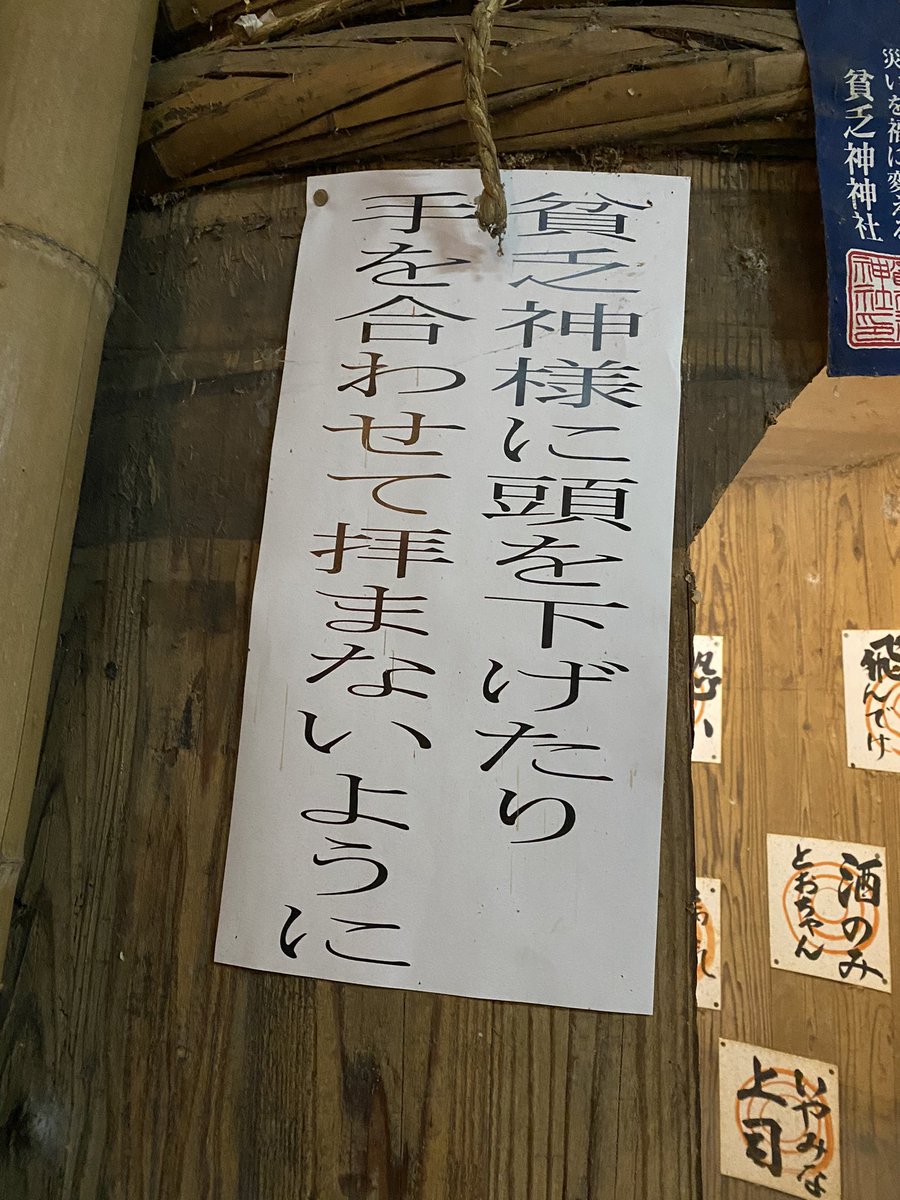 貧乏神様に頭を下げたり
手を合わせて拝まないように
災いを福に変える
貧乏神神社
飛んでけ
酒のみ
とおちゃん
いやみな
上司